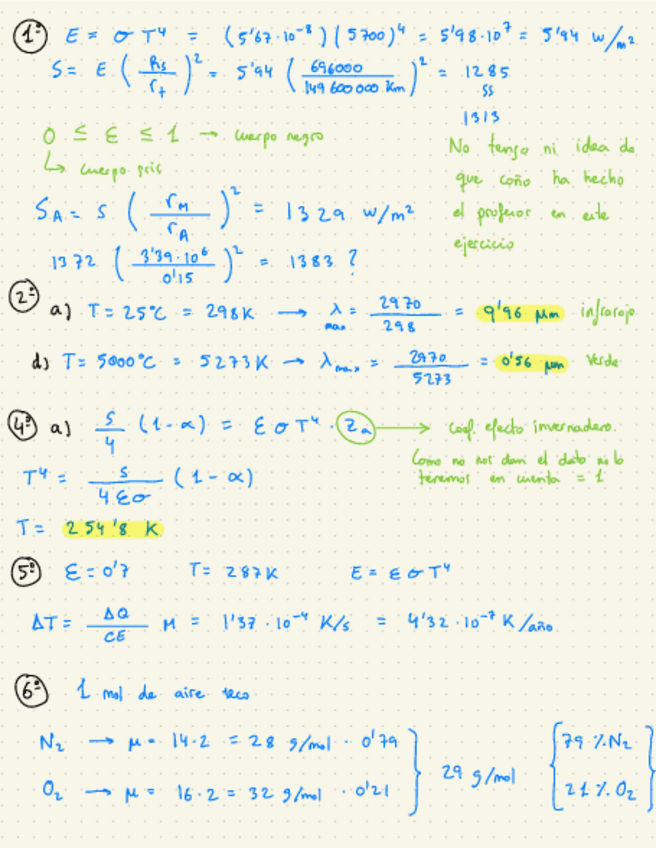 1º E = σ T⁴ = (5'67·10⁻⁸)(5700)⁴ = 5'98·10⁷ = 5'94 w/m²
S = E (Rs/r_t)² = 5'94 (696000/149600000 Km)² = 1285
SS
1313
0 ≤ ε ≤ 1 → cuerpo negro
↳ cuerpo gris
No tengo ni idea de
que coño ha hecho
el profesor en este
ejercicio
S_A = S (r_M/r_A)² = 1329 w/m²
1372 (3'39·10⁶/0'15)² = 1383 ?
2º a) T = 25ºC = 298K → λmax = 2970/298 = 9'96 μm infrarojo
d) T = 5000ºC = 5273K → λmax = 2970/5273 = 0'56 μm Verde
4º a) S/4 (1-α) = ε σ T⁴ · Za → coef. efecto invernadero.
Como no nos dan el dato no lo
teremos en cuenta = 1
T⁴ = S/4εσ (1-α)
T = 254'8 K
5º ε = 0'7 T = 287K E = ε σ T⁴
ΔT = ΔQ/CE M = 1'37·10⁻⁴ K/s = 4'32·10⁻⁷ K/año
6º 1 mol de aire seco
N₂ → μ = 14·2 = 28 g/mol · 0'79
O₂ → μ = 16·2 = 32 g/mol · 0'21
29 g/mol
79 % N₂
21 % O₂